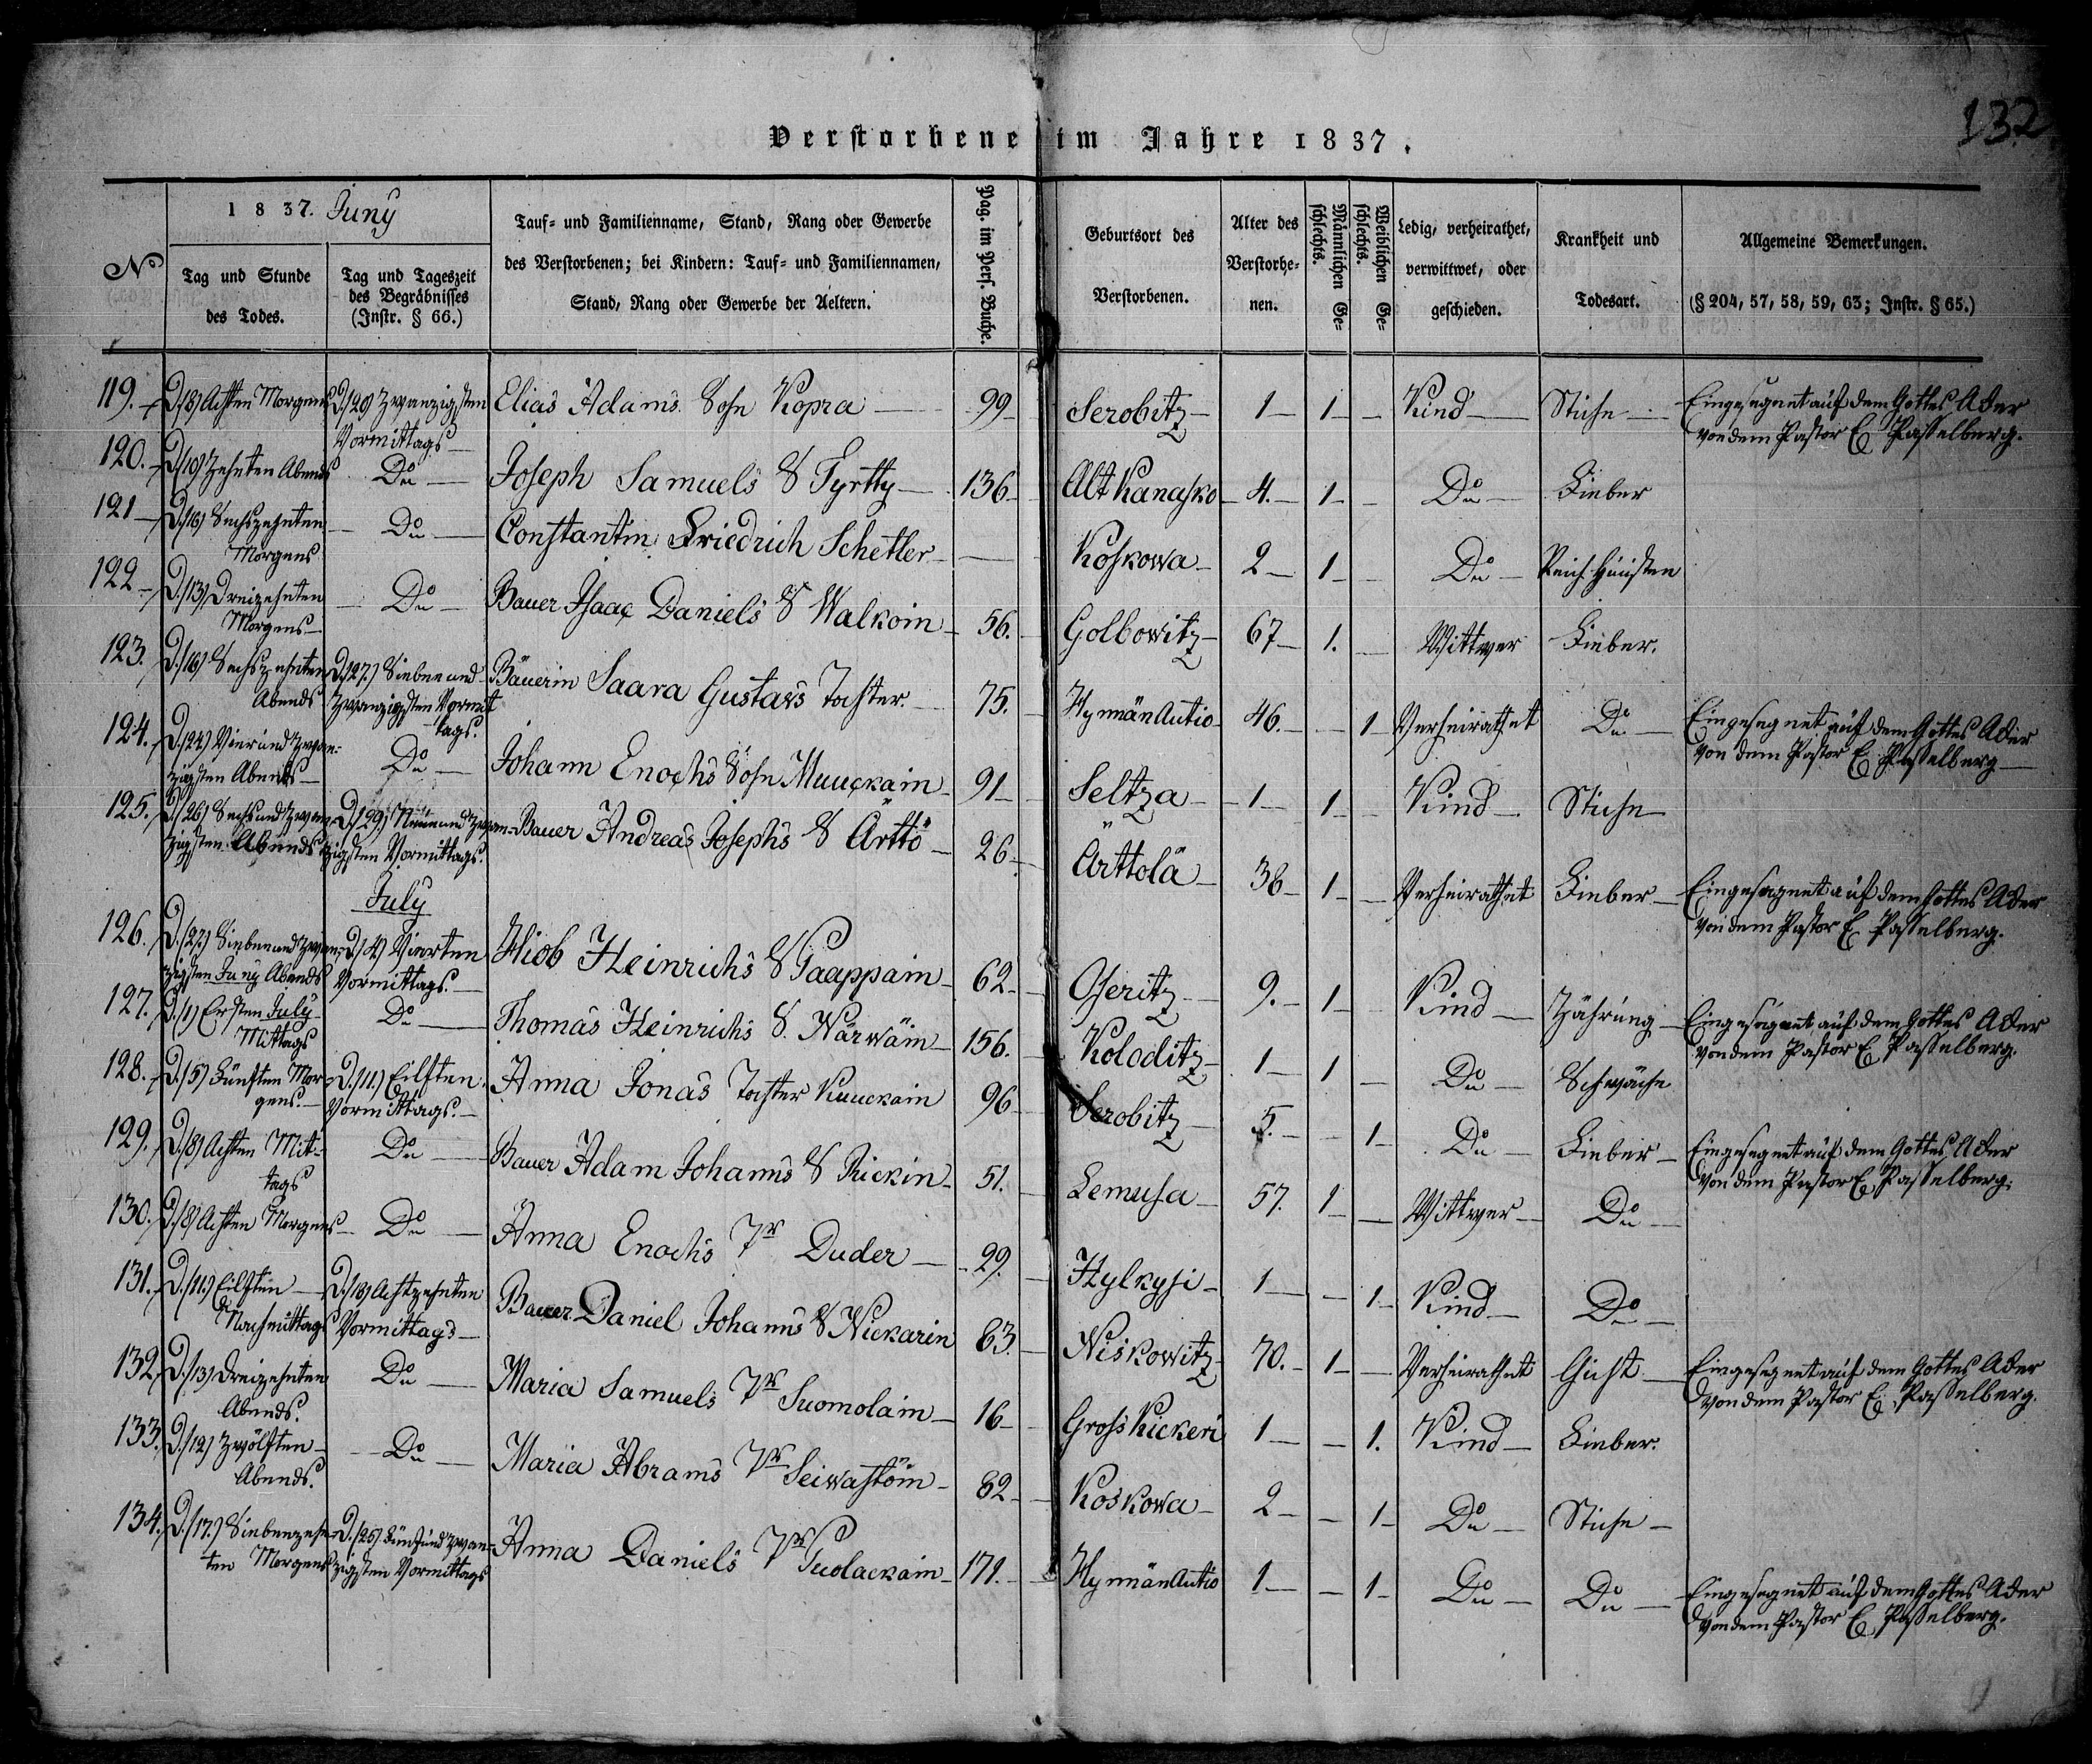 132
Verstorbene im Jahre 1837.
No
1837. Juny
Tag und Stunde des Todes.
Tag und Tageszeit des Begräbnisses (Instr. § 66.)
Tauf- und Familienname, Stand, Rang oder Gewerbe
des Verstorbenen; bei Kindern: Tauf- und Familiennamen,
Stand, Rang oder Gewerbe der Aeltern.
Pag. im Pers. Buche.
Geburtsort des Verstorbenen.
Alter des Verstorbe-nen.
Männlichen Ge-schlechts.
Weiblichen Ge-schlechts.
Ledig, verheirathet, verwittwet, oder geschieden.
Krankheit und Todesart.
Allgemeine Bemerkungen.
(§ 204, 57, 58, 59, 63; Instr. § 65.)
119. D. (8) Achten Morgens D. (20) Zwanzigsten Elias Adams Sohn Kopra 99 Serobitz 1 1 Kind Stiche Eingesegnet auf dem Gottes Acker
Vormittags von dem Pastor E Hasselberg.
120. D. (10) Zehnten Abends Do Joseph Samuels S Tyrtty 136 Alt Kanasko 4. 1 Do Fieber
121 D. (16) Sechszehnten Do Constantin Friedrich Schetler Koskowa 2 1 Do Husten
Morgens
122 D. (13) Dreizehnten Do Bauer Isaac Daniels S Walkoin 56. Golbowitz 67 1. Wittwer Fieber.
Morgens
123. D. (16) Sechszehnten D. (27.) Sieben und Bäuerin Saara Gustavs Tochter. 75. HymänAutio 46. 1 Verheirathet Do Eingesegnet auf dem Gottes Acker
Abends zwanzigsten Vormit von dem Pastor E Hasselberg
tags.
124. D. (24) Vier und zwan- Do Johann Enochs Sohn Muuckain 91 Seltza 1 1 Kind Stiche
zigsten Abends
125. D. (26) Sechs und zwan- D. (29) Neun und zwan- Bauer Andreas Josephs S Ärttö 26 Ärttolä 38 1 Verheirathet Fieber Eingesegnet auf dem Gottes Acker
zigsten Abends zigsten Vormittags. von dem Pastor E Hasselberg.
July
126. D. (27) Sieben und zwan- D. (4) Vierten Hiob Heinrichs S Paappain 62 Oseritz 9. 1 Kind Zährung Eingesegnet auf dem Gottes Acker
zigsten Juny Abends Vormittags. von dem Pastor E Hasselberg.
127. D. (1) Ersten July Do Thomas Heinrichs S. Närwäin 156. Koloditz 1 1 Do Schwäche
Mittags
128. D. (5) Fünften Mor- D. (11.) Eilften Anna Jonas Tochter Kuuckain 96 Serobitz 5. 1 Do Fieber Eingesegnet auf dem Gottes Acker
gens. Vormittags. von dem Pastor E Hasselberg.
129. D. (8) Achten Mit- Do Bauer Adam Johanns S Rickin 51. Lemusa 57. 1 Wittwer Do
tags
130. D. (8) Achten Morgens Do Anna Enochs Tr Duder 29. Hylkysi 1 1 Kind Do
131. D. (11.) Eilften D. (18) Achtzehnten Bauer Daniel Johanns S Nickarin 83. Niskowitz 70. 1 Verheirathet Gicht Eingesegnet auf dem Gottes Acker
Nachmittags Vormittags von dem Pastor E Hasselberg.
132. D. (13) Dreizehnten Do Maria Samuels Tr Suomolain 16 Gross Kickeri 1 1. Kind Fieber.
Abends.
133. D. (12) Zwölften Do Maria Abrams Tr Seiwastöin 82 Koskowa 2 1 Do Stiche
Abends.
134. D. (17.) Siebenzehn- D. (25) Fünf und zwan- Anna Daniels Tr Puolackain 171. HymänAutio 1 1 Do Do Eingesegnet auf dem Gottes Acker
ten Morgens zigsten Vormittags von dem Pastor E Hasselberg.